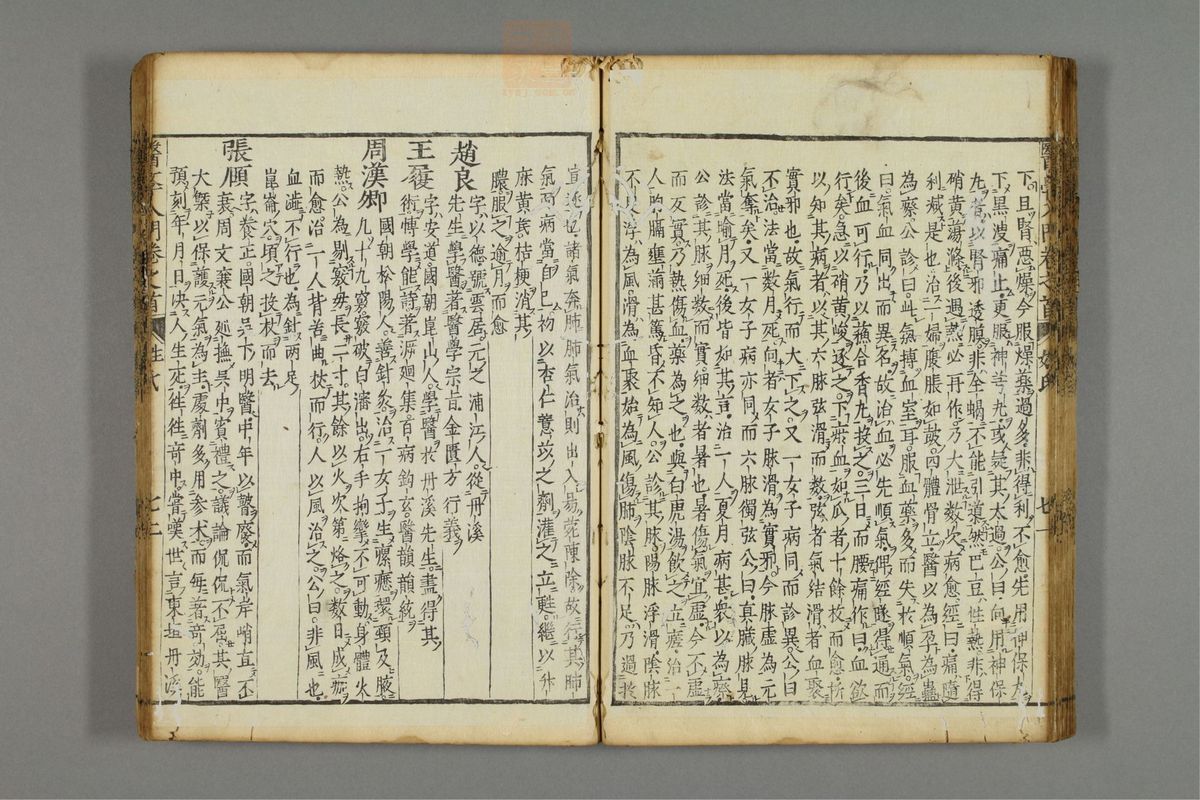 下且腎惡燥今服燥藥過多非得利不愈先用神保丸
下黑溲痛止更服神芎丸或疑其太過公曰向用神保
丸者以腎邪透膜非全蝎不能引導然巴豆性熱非得
硝黃蕩滌後過熱必再作乃大泄數次病愈經曰痛隨
利減是也治一婦腹脹如鼓四體骨立醫以為孕為蠱
為瘵公診曰此氣搏血室耳服血藥多而失於順氣經
曰氣血同出而異名故治血必先順氣俾經隧得通而
後血可行乃以蘓合香丸投之三日而腰痛作曰血欲
行矣急以硝黃峻逐之下瘀血如瓜者十餘枚而愈
以知其病者以其六脉弦滑而數弦者氣結滑者血聚
實邪也故氣行而大下之又一女子病同而診異公曰
不治法當數月死向者女子脉滑為實邪今脉虛為元
氣奪矣又一女子病亦同而六脉獨弦公曰真臟脉見
法當逾月死後皆如其言治一人夏月病甚衆以為瘵
公診其脉細數而實細數者暑也暑傷氣宜虛今不虛
而反實乃熱傷血藥為之也與白虎湯飲之立瘥治一
人胸膈壅滿甚篤昏不知人公診其脉陽脉浮滑陰脉
不足浮為風滑為血聚始為風傷肺陰脉不足乃過於
宣逐也諸氣奔肺肺氣治則出入易菀陳除故行其肺
氣而病當自已初以杏仁薏苡之劑灌之立甦繼以升
麻黃芪桔梗消其
膿服之逾月而愈
趙良 字以德號雲居元之浦江人從丹溪
先生學醫著醫學宗旨金匱方衍義
王履 字安道國朝崑山人學醫於丹溪先生盡得其
術愽學能詩著溯廻集百病鉤玄醫韻韻統
周漢卿 國朝松陽人善針灸治一女子生瘰癧環頸及腋
凡十九竅竅破白瀋出右手拘攣不可動身體火
熱公為剔竅毋長二寸其餘以火次第烙之數日成痂
而愈治一人背苦曲杖而行人以風治之公曰非風也
血澁不行也為針兩足
崑崙穴頃之投杖而去
張頤 字養正國朝吳下明醫中年以瞽廢而氣岸峭直不
衰周文襄公廵撫吳中賓禮之議論侃侃不屈其醫
大槩以保護元氣為主處劑多用参朮而每著奇効能
預刻年月日决人生死徃徃竒中嘗嘆世言東垣丹溪